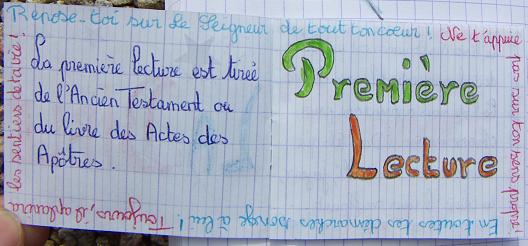 Repose-toi sur le Seigneur de tout ton coeur !
Ne t'appuie
pas sur ton sens propre !
En toutes tes démarches songe à lui !
Toujours, il aplanira
les sentiers de ta vie !
La première lecture est tirée
de l'Ancien Testament ou
du livre des Actes des
Apôtres.
Première
Lecture